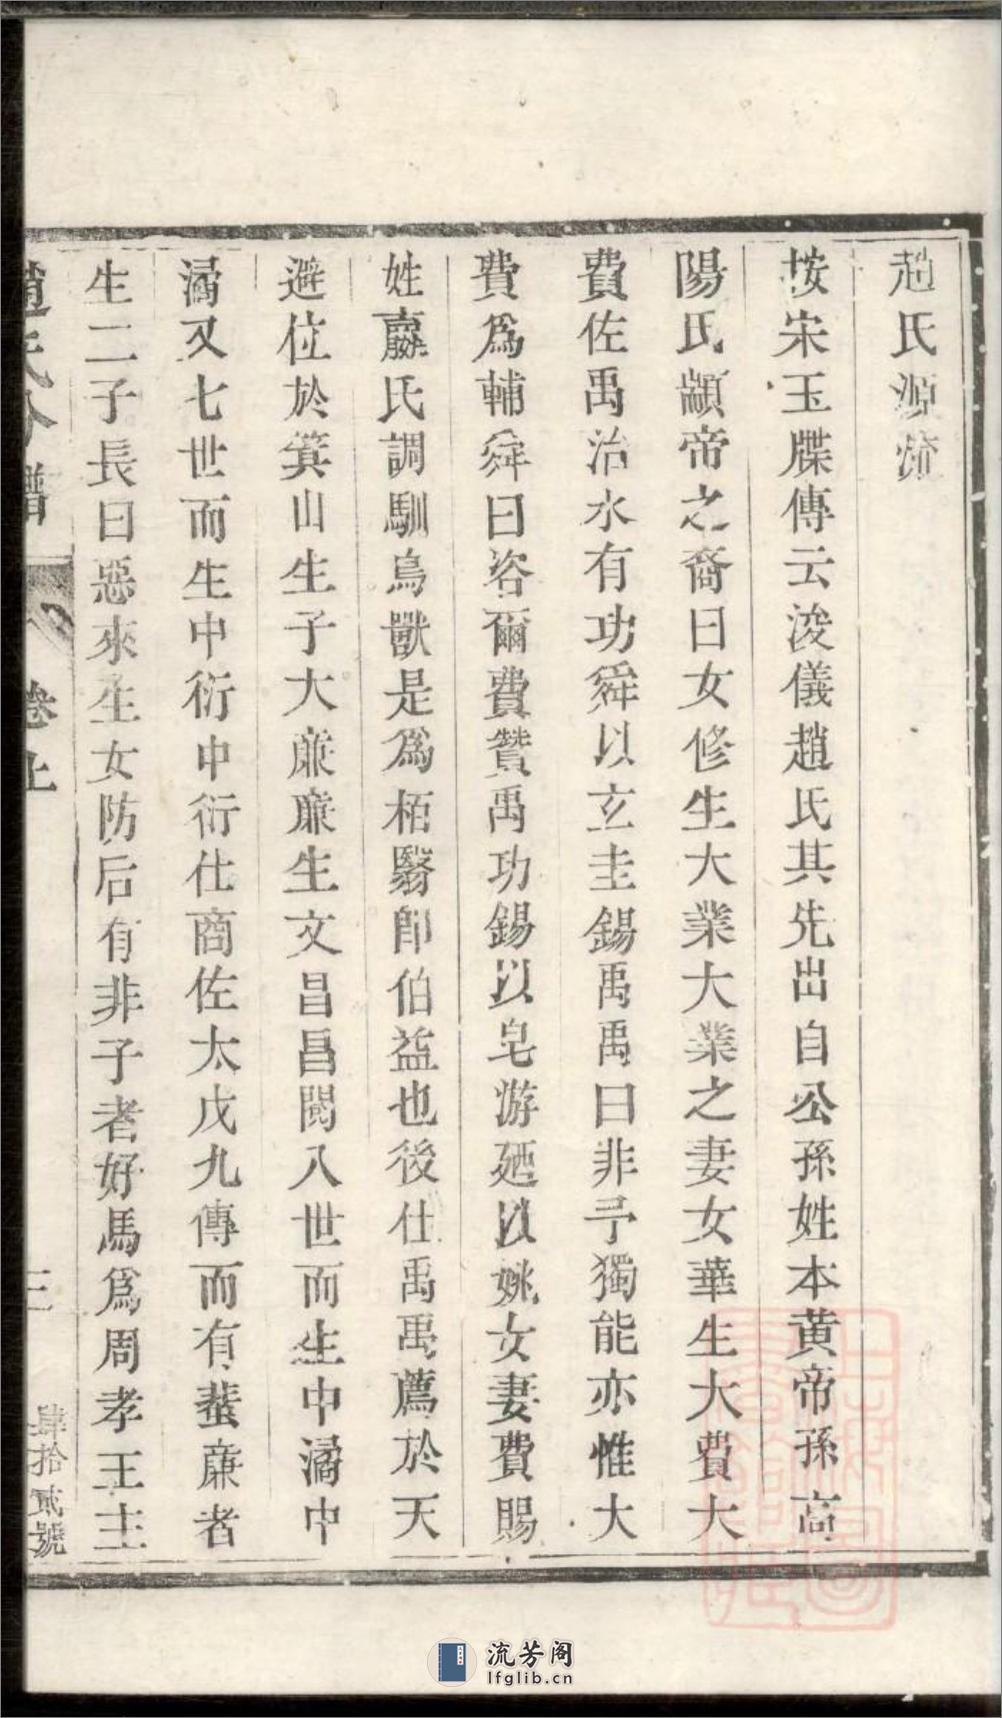 趙氏源流
按宋玉牒傳云浚儀趙氏其先出自公孫姓本黃帝孫高
陽氏顓帝之裔曰女修生大業大業之妻女華生大費大
費佐禹治水有功舜以玄圭錫禹禹曰非予獨能亦惟大
費為輔舜曰咨爾費贊禹功錫以皂游廼以姚女妻費賜
姓嬴氏調馴鳥獸是為栢翳即伯益也後仕禹禹薦於天
避位於箕山生子大廉廉生文昌昌閱八世而生中潏中
潏又七世而生中衍中衍仕商佐太戊九傳而有蜚廉者
生二子長曰惡來生女防后有非子者好馬為周孝王主
趙氏分譜 卷上 三 肆拾貳號
流芳阁
lfglib.cn